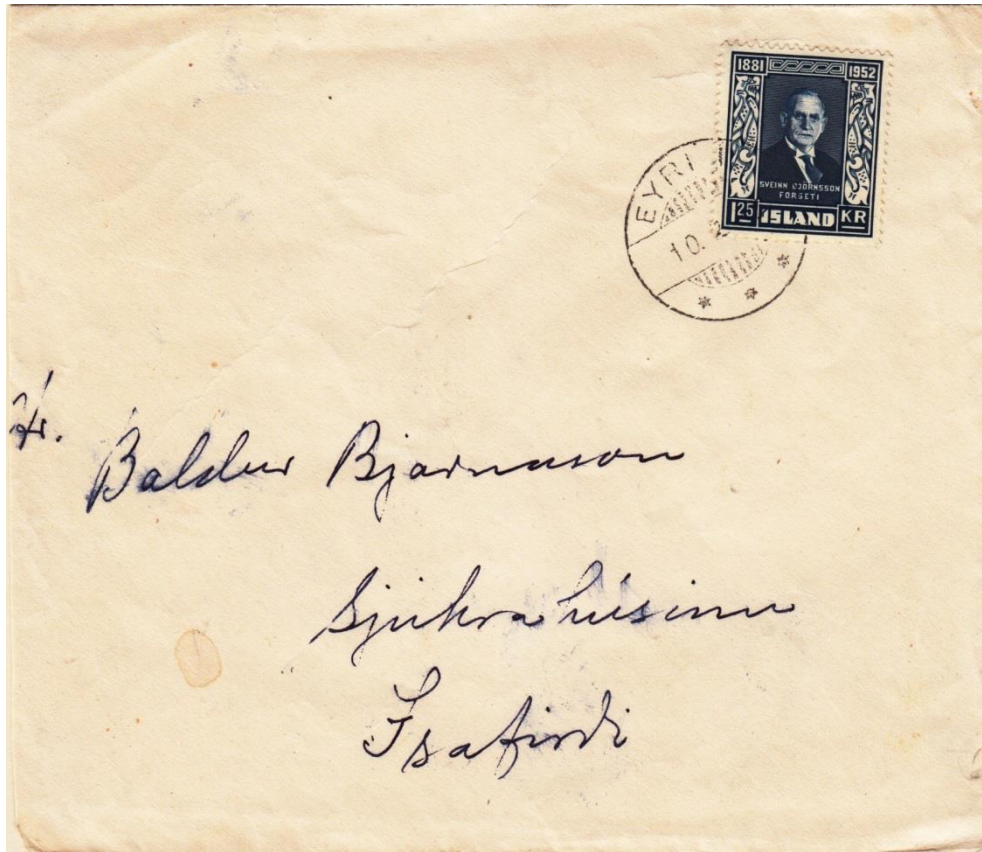 1881 1952
SVEINN BJÖRNSSON
FORSETI
1 25 ÍSLAND KR
EYRI
10.
Hr.
Baldur Bjarnason
Sjúkrahúsinu
Ísafirdi